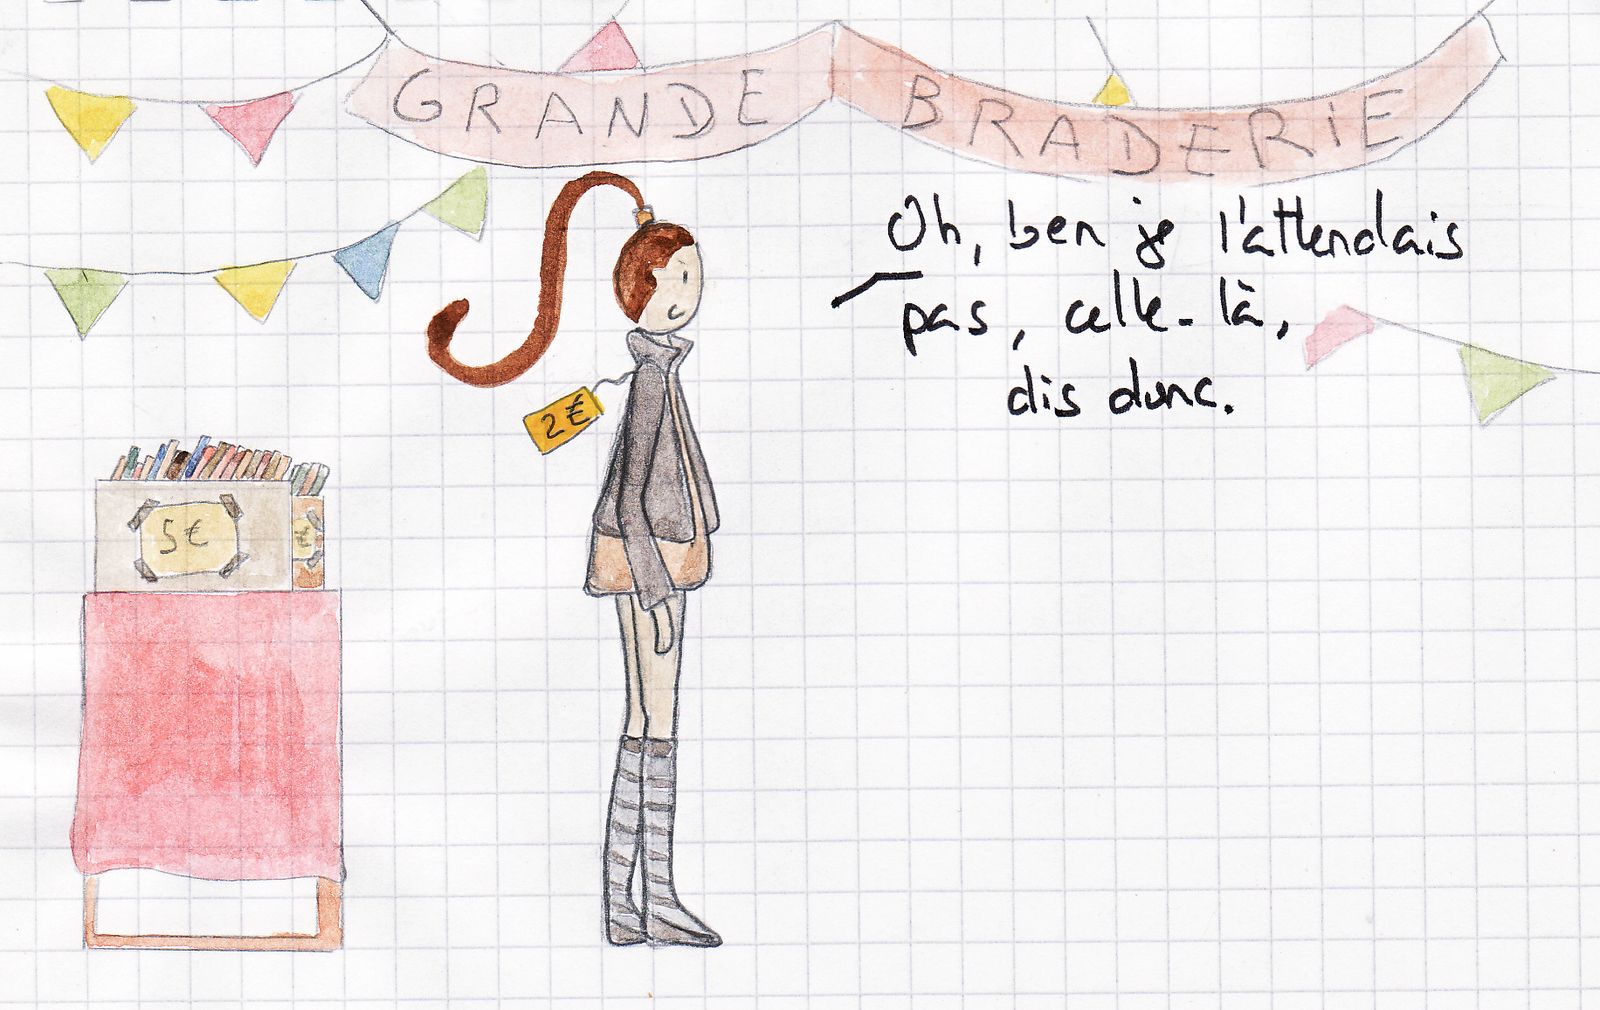 GRANDE BRADERIE
Oh, ben je l'attendais
pas, celle-là,
dis donc.
2€
5€
€